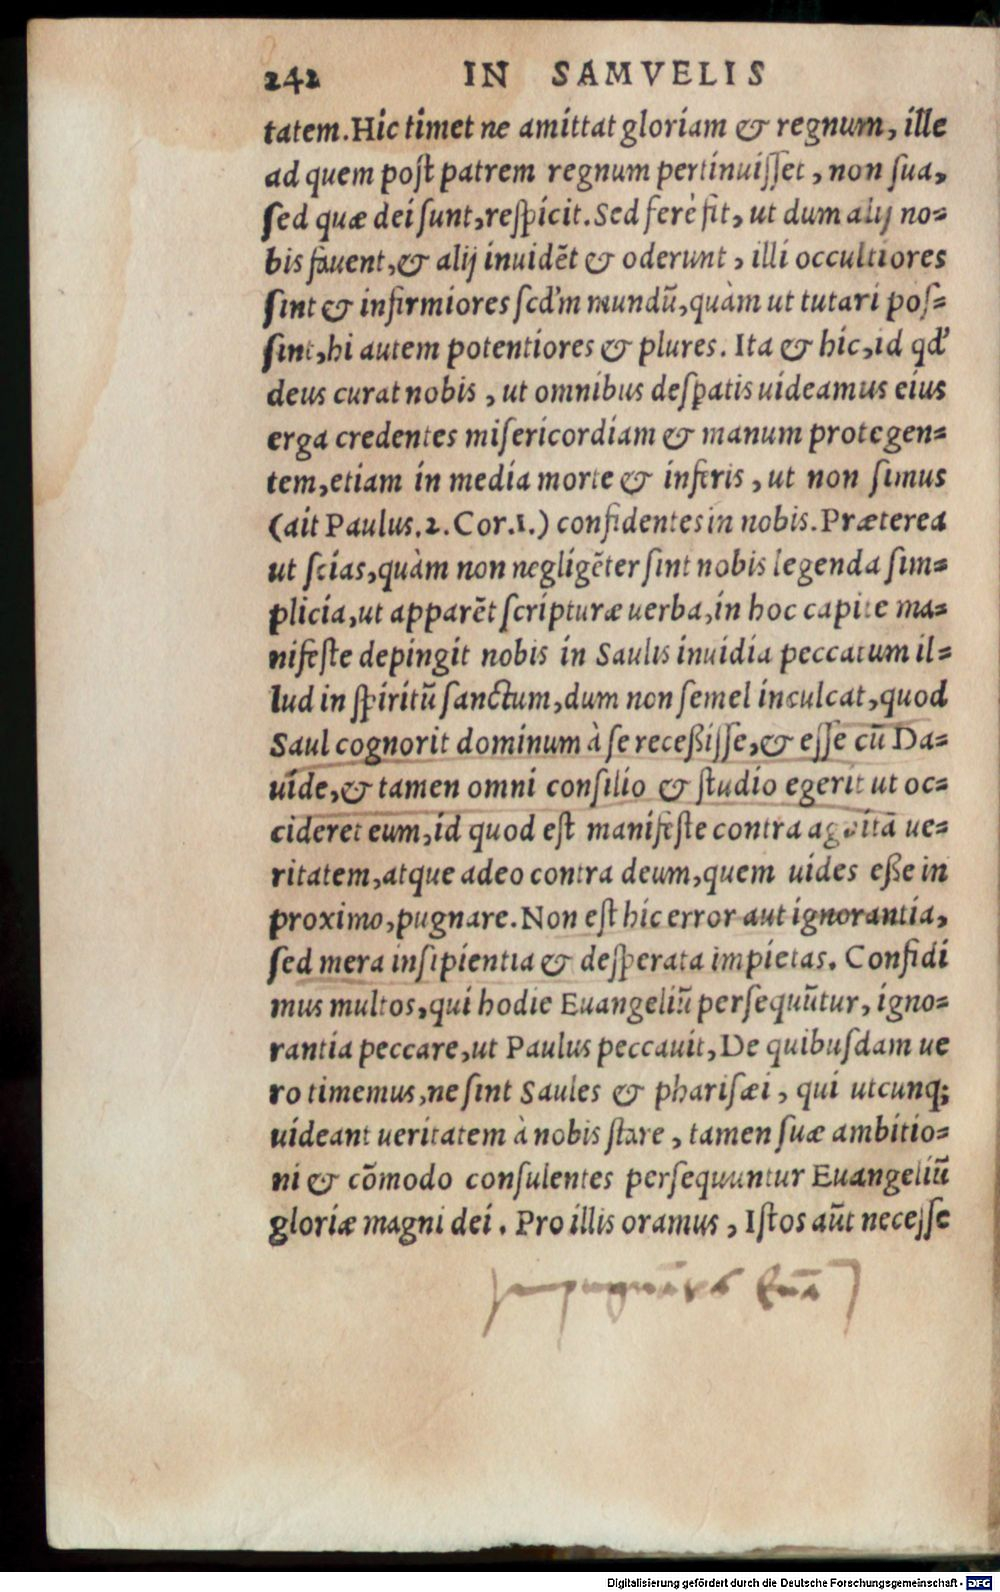 242 IN SAMVELIS
tatem.Hic timet ne amittat gloriam & regnum, ille
ad quem poſt patrem regnum pertinuiſſet, non ſua,
ſed quæ dei ſunt,reſpicit.Sed ferè fit, ut dum alij no-
bis fauent,& alij inuidẽt & oderunt, illi occultiores
ſint & infirmiores ſcd'm mundũ,quàm ut tutari poſ-
ſint,hi autem potentiores & plures. Ita & hic,id qd'
deus curat nobis, ut omnibus deſpatis uideamus eius
erga credentes miſericordiam & manum protegen-
tem,etiam in media morte & inferis, ut non ſimus
(ait Paulus.2.Cor.1.) confidentes in nobis.Præterea
ut ſcias,quàm non negligẽter ſint nobis legenda ſim-
plicia,ut apparẽt ſcripturæ uerba,in hoc capite ma-
nifeſte depingit nobis in Saulis inuidia peccatum il-
lud in ſpiritũ ſanctum,dum non ſemel inculcat,quod
Saul cognorit dominum à ſe receßiſſe,& eſſe cũ Da-
uide,& tamen omni conſilio & ſtudio egerit ut oc-
cideret eum,id quod eſt manifeſte contra agnitã ue-
ritatem,atque adeo contra deum,quem uides eße in
proximo,pugnare.Non eſt hic error aut ignorantia,
ſed mera inſipientia & deſperata impietas. Confidi
mus multos,qui hodie Euangeliũ perſequũtur, igno-
rantia peccare,ut Paulus peccauit,De quibuſdam ue
ro timemus,ne ſint Saules & phariſæi, qui utcunq;
uideant ueritatem à nobis ſtare, tamen ſuæ ambitio-
ni & cõmodo conſulentes perſequuntur Euangeliũ
gloriæ magni dei. Pro illis oramus, Iſtos aũt neceſſe
Digitalisierung gefördert durch die Deutsche Forschungsgemeinschaft - DFG